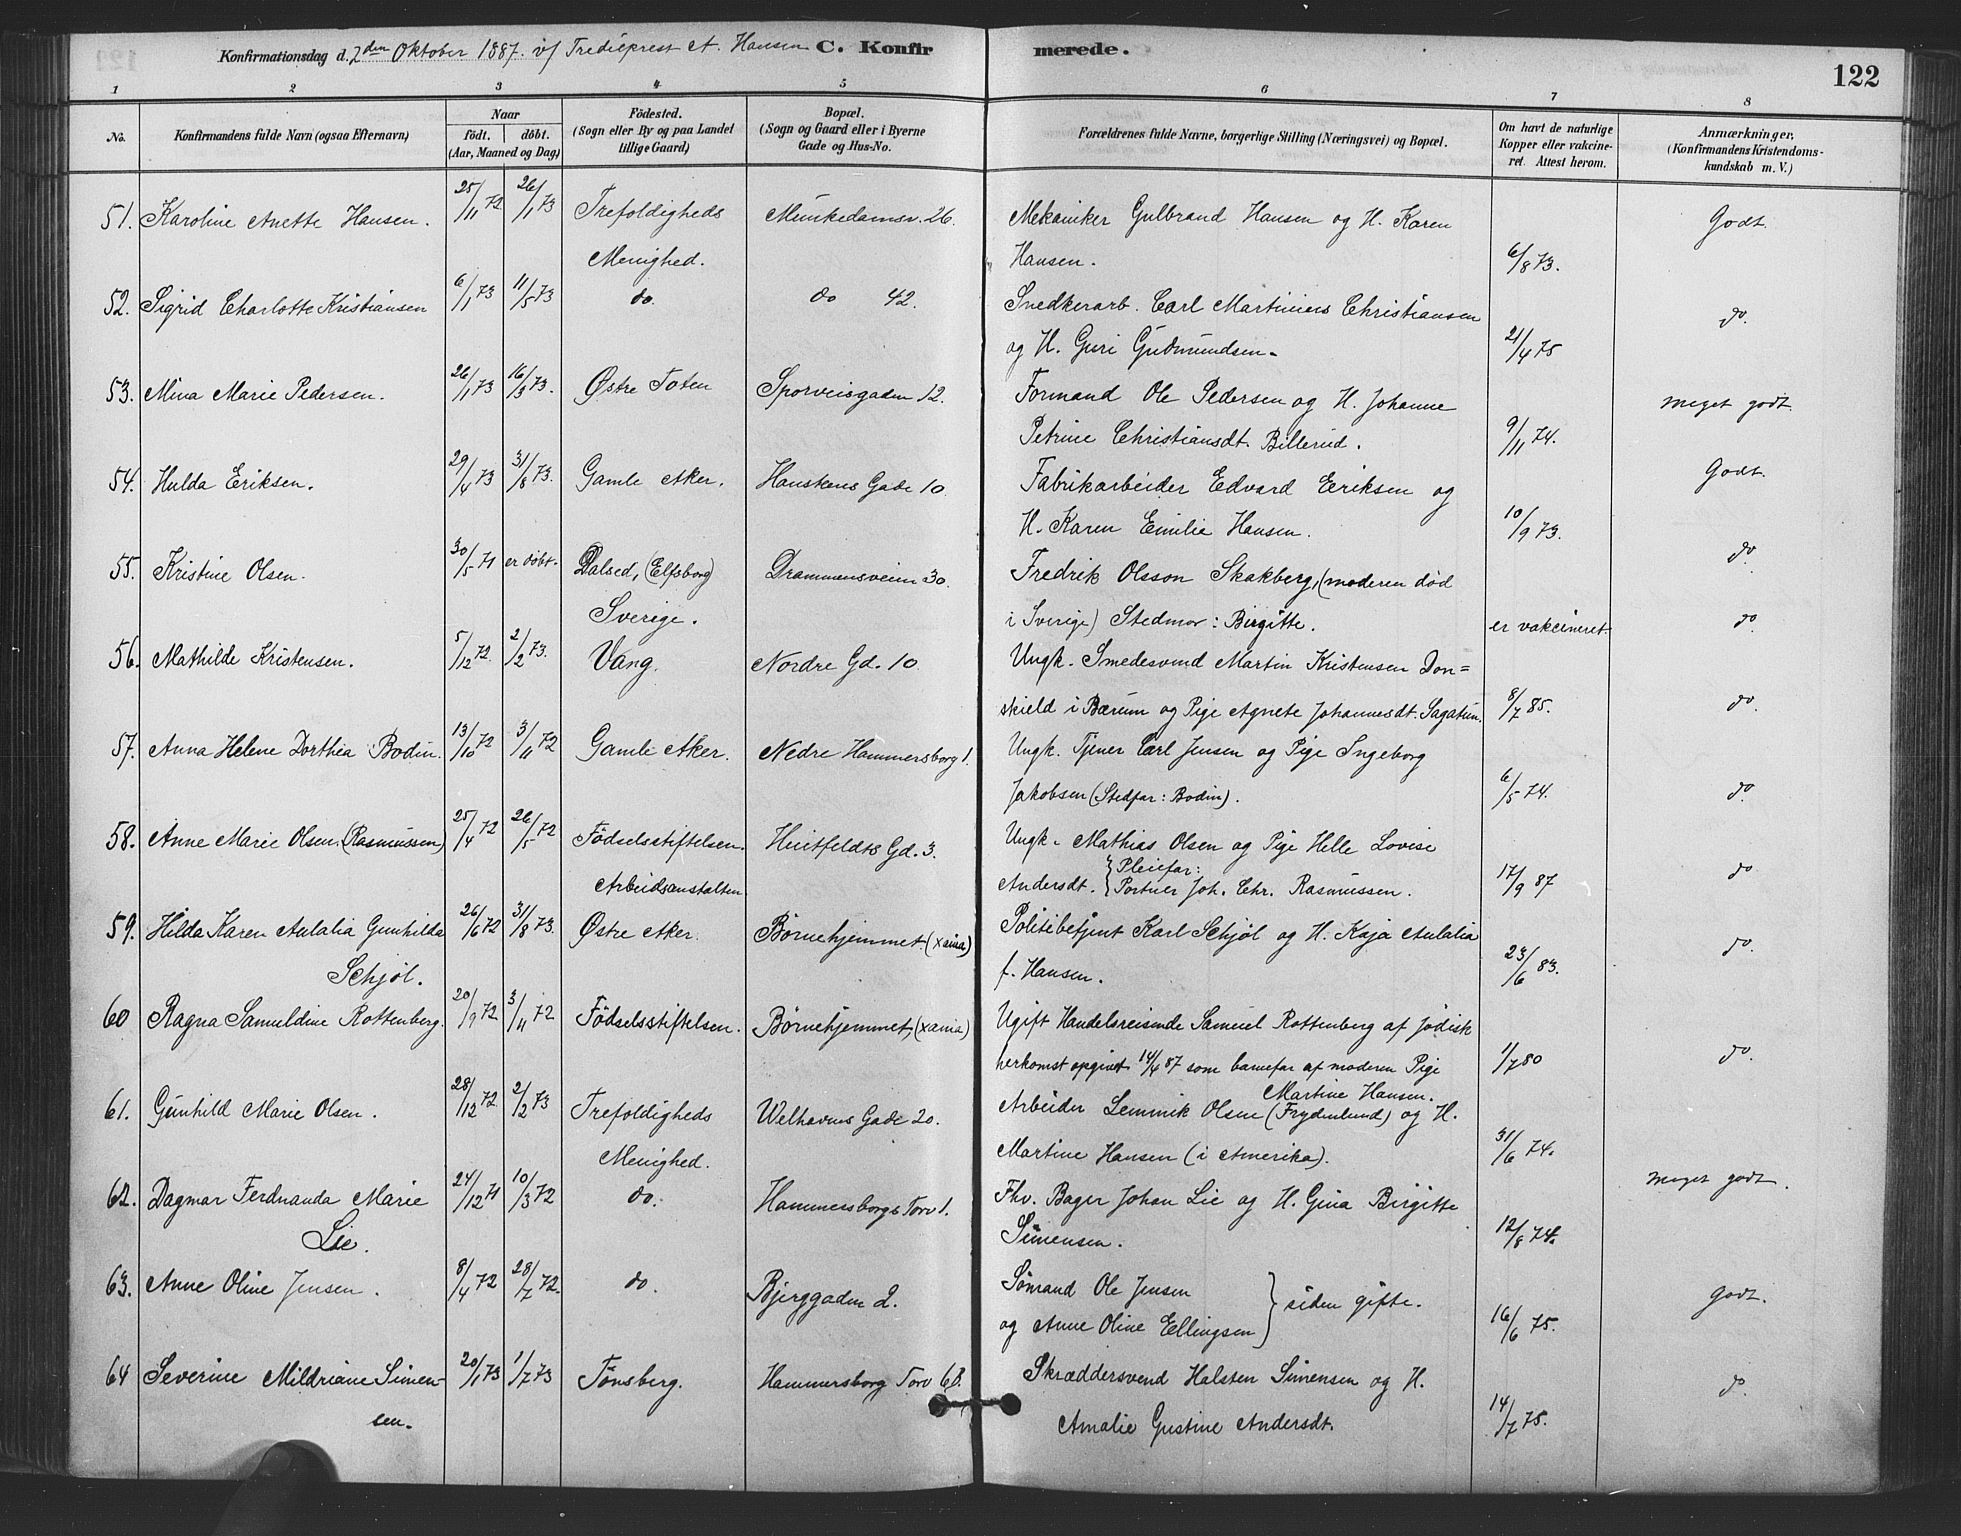 Konfirmationsdag d. 2den Oktober 1887. v/ Tredieprest A. Hansen C. Konfirmerede. 122
1 2 3 4 5 6 7 8
No. Konfirmandens fulde Navn (ogsaa Efternavn) Naar født. døbt. (Aar, Maaned og Dag) Fødested. (Sogn eller By og paa Landet tillige Gaard) Bopæl. (Sogn og Gaard eller i Byerne Gade og Hus-No. Forældrenes fulde Navne, borgerlige Stilling (Næringsvei) og Bopæl. Om havt de naturlige Kopper eller vakcineret. Attest herom. Anmærkninger. (Konfirmandens Kristendomskundskab m. V.)
51. Karoline Anette Hansen. 25/11 72 26/1 73 Trefoldigheds Munkedamsv. 26. Mekaniker Gulbrand Hansen og H. Karen Godt.
Menighed. Hansen. 6/8 73.
52. Sigrid Charlotte Kristiansen 6/1 73 11/5 73 do. do 42. Snedkerarb. Carl Martinius Christiansen do.
og H. Guri Gudmundsen. 21/4 75
53. Mina Marie Pedersen. 26/1 73 16/3 73. Østre Toten Sporveisgaden 12. Formand Ole Pedersen og H. Johanne meget godt.
Petrine Christiansdt. Billerud. 9/11 74.
54. Hulda Eriksen. 29/4 73 31/8 73. Gamle Aker. Hauskens Gade 10. Fabrikarbeider Edvard Eriksen og Godt.
H. Karen Emilie Hansen. 10/9 73.
55. Kristine Olsen. 30/5 71 er døbt. Dalsed, (Elfsborg) Drammensveien 30. Fredrik Olsson Skakberg, (moderen død do.
Sverige. i Sverige) Stedmor: Birgitte. er vakcineret.
56. Mathilde Kristensen. 5/12 72. 2/2 73. Vang. Nordre Gd. 10. Ungk. Smedesvend Martin Kristensen Don= do
skield i Bærum og Pige Agnete Johannesdt. Sagatun. 8/7 85.
57. Anna Helene Dorthea Bodin. 13/10 72 3/11 72 Gamle Aker. Nedre Hammersborg 1. Ungk. Tjener Carl Jensen og Pige Ingeborg do.
Jakobsen (Stedfar: Bodin). 6/5 74.
58. Anne Marie Olsen. (Rasmussen) 25/4 72 26/5 72 Fødselsstiftelsen. Huitfeldts Gd. 3. Ungk. Mathias Olsen og Pige Helle Lovise do.
Arbeidsanstalten Andersdt. { Pleiefar: Portner Joh. Chr. Rasmussen. 17/9 87
59. Hilda Karen Aulalia Gunhilda 26/6 72 31/8 73. Østre Aker. Børnehjemmet. (Xania) Politibetjent Karl Schjøl og H. Kaja Aulalia do.
Schjøl. f. Hansen. 23/6 83.
60 Ragna Samuldine Rottenberg. 20/9 72 3/11 72 Fødselsstiftelsen. Børnehjemmet, (Xania) Ugift Handelsreisende Samuel Rottenberg af jødisk
herkomst opgivet 14/4 87 som barnefar af moderen Pige 1/7 80 do.
Martine Hansen.
61. Gunhild Marie Olsen. 28/12 72 2/2 73 Trefoldigheds Welhavns Gade 20. Arbeider Lemmik Olsen (Frydenlund) og H.
Menighed. Martine Hansen (i Amerika). 31/6 74.
62. Dagmar Ferdnanda Marie 24/12 71 10/3 72 do. Hammersborgs Torv 1. Fhv. Bager Johan Lie og H. Gina Birgitte meget godt.
Lie. Simensen. 12/8 74.
63. Anne Oline Jensen. 8/4 72 28/7 72. do. Bjerggaden 2. Sømand Ole Jensen } siden gifte. Godt.
og Anne Oline Ellingsen 16/6 75.
64 Severine Mildriane Simen- 20/1 73 1/7 73 Tønsberg. Hammersborg Torv 6B. Skræddersvend Halsten Simensen og H. do.
sen. Amalie Gustine Andersdt. 14/7 75.